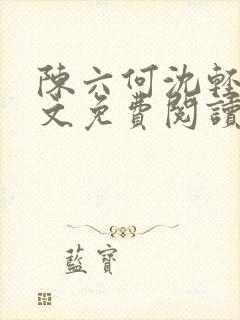 陳六何沈輕
文免費閱讀
藍寶